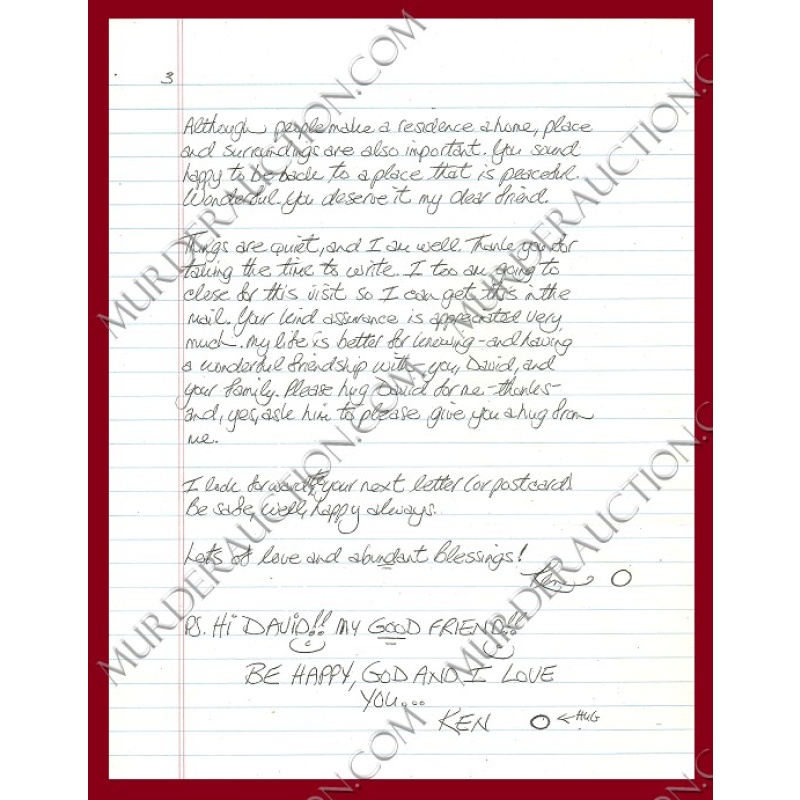 3
Although people make a residence a home, place
and surroundings are also important. You sound
happy to be back to a place that is peaceful.
Wonderful. You deserve it my dear friend.
Things are quiet, and I am well. Thank you for
taking the time to write. I too am going to
close for this visit so I can get this in the
mail. Your kind assurance is appreciated very
much. My life is better for knowing - and having
a wonderful friendship with - you, David, and
your family. Please hug David for me - thanks -
and, yes, ask him to please give you a hug from
me.
I look forward to your next letter (or postcard)
Be safe, well, happy always.
Lots of love and abundant blessings!
Ken
PS. HI DAVID!! MY GOOD FRIEND!!
BE HAPPY, GOD AND I LOVE
YOU...
KEN O ← HUG
MURDERAUCTION.COM